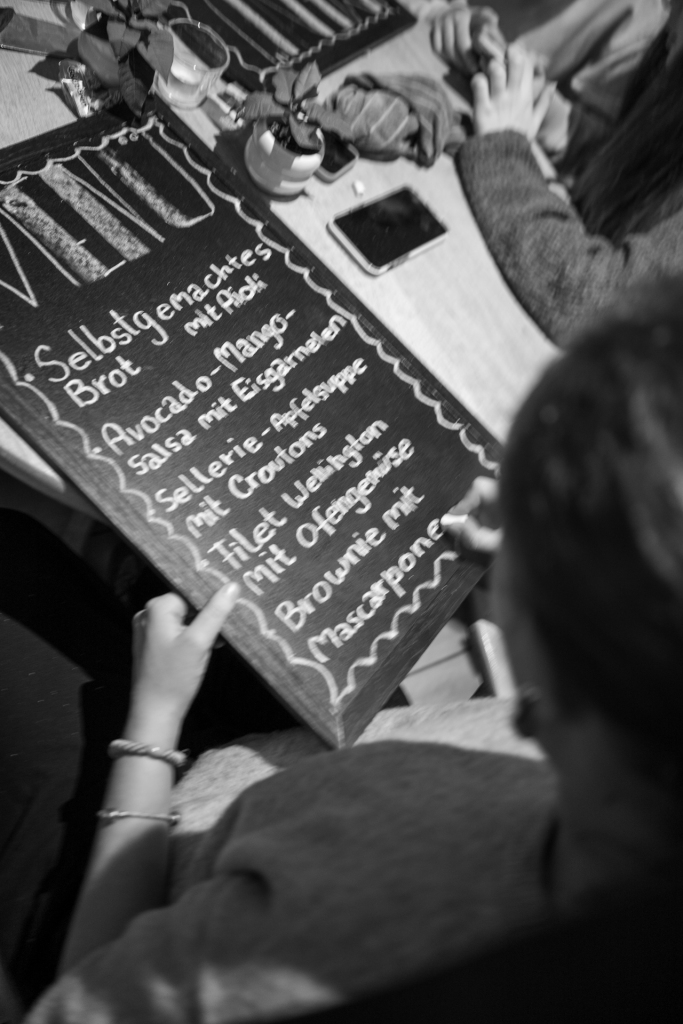 MENÜ
· Selbstgemachtes
Brot mit Aioli
· Avocado-Mango-
Salsa mit Eisgarnelen
Sellerie-Apfelsuppe
mit Croutons
Filet Wellington
Mit Ofengemüse
Brownie mit
Mascarpone